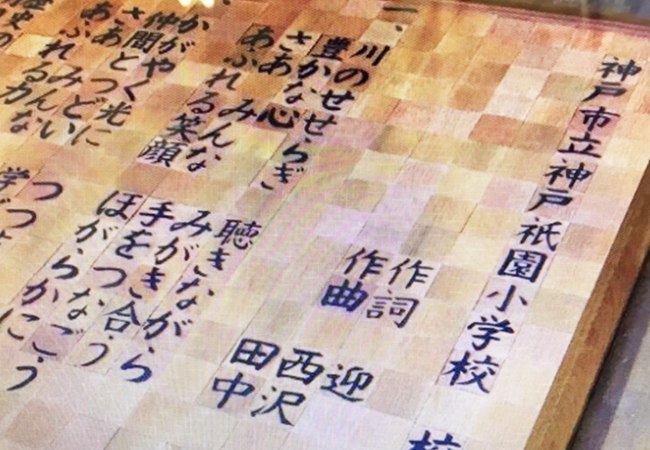 神戸市立神戸祇園小学校 校
作詞 迎
作曲 西沢
田中
一、川のせせらぎ 聴きながら
豊かな心 みがき合う
さあ みんな 手をつなごう
あふれる笑顔 ほがらかに
かがやく光に つつ
仲間とつどい 学び
さあ みんな
あふれる力
歴史の